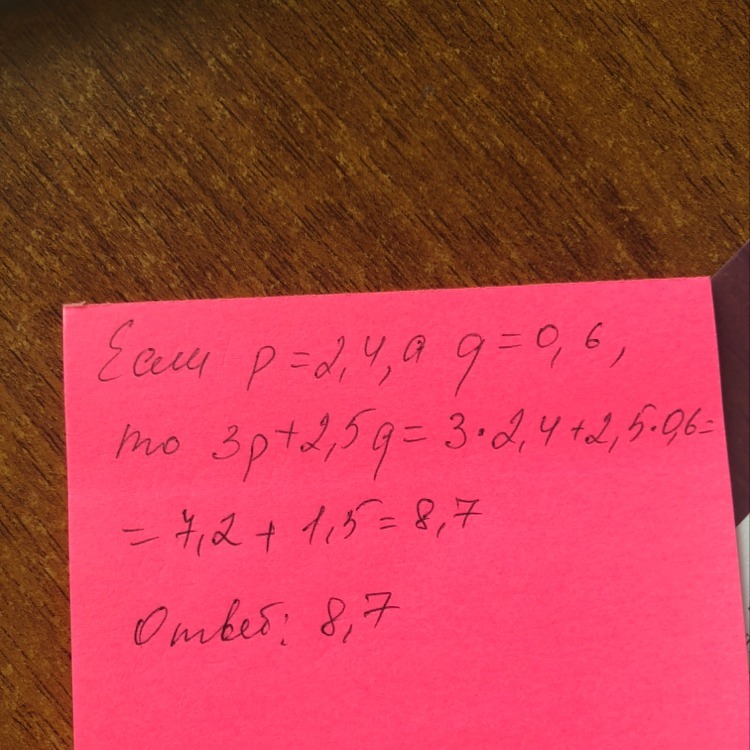 Если p=2,4, а q=0,6,
то 3p+2,5q=3·2,4+2,5·0,6=
=7,2+1,5=8,7
Ответ: 8,7